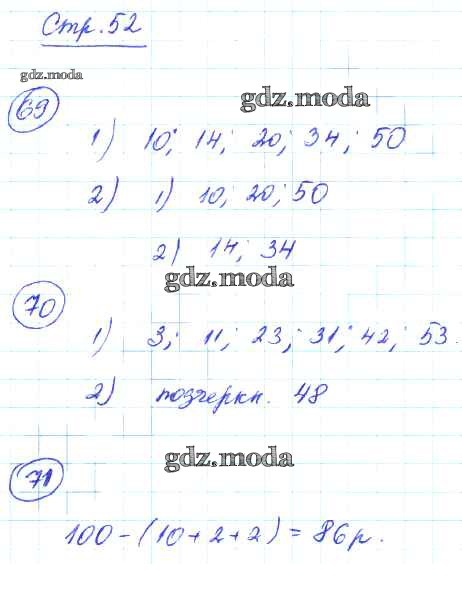 Стр. 52
gdz.moda
69
gdz.moda
1) 10; 14; 20; 34; 50
2) 1) 10; 20; 50
2) 14; 34
gdz.moda
70
1) 3; 11; 23; 31; 42; 53.
2) подчеркн. 48
gdz.moda
71
100-(10+2+2)=86р.